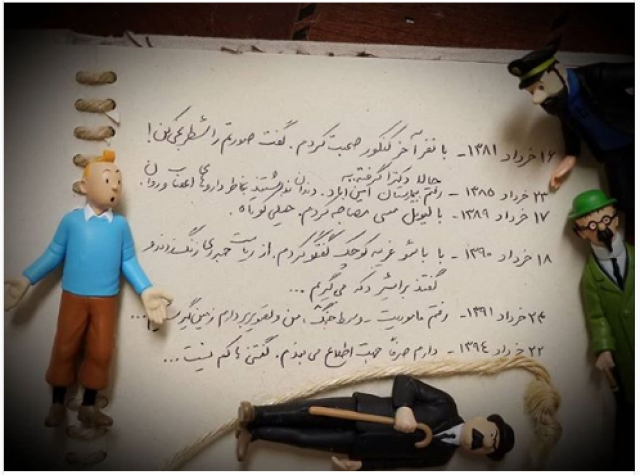 ۱۶ خرداد ۱۳۸۱ - با نفر آخر کنکور صحبت کردم. گفت صورتم را شطرنجی کن!
حالا دکترا گرفته
۲۳ خرداد ۱۳۸۵ - رفتم بیمارستان امین آباد. دندان نداشتند بخاطر داروهای اعصاب و روان
۱۷ خرداد ۱۳۸۹ - با لیونل مسی مصاحبه کردم. خیلی کوتاه.
۱۸ خرداد ۱۳۹۰ - با باشو غریبه کوچک گفتگو کردم. از ریاست جمهوری زنگ زدند و
گفتند براش دکه می‌گیریم ...
۲۴ خرداد ۱۳۹۱ - رفتم ماموریت - وسط جنگ، من و تصویربردارم زمین‌گیر ...
۲۲ خرداد ۱۳۹۴ - دارم صرفاً جهت اطلاع می‌سازم. گفتنی‌ها کم نیست ...